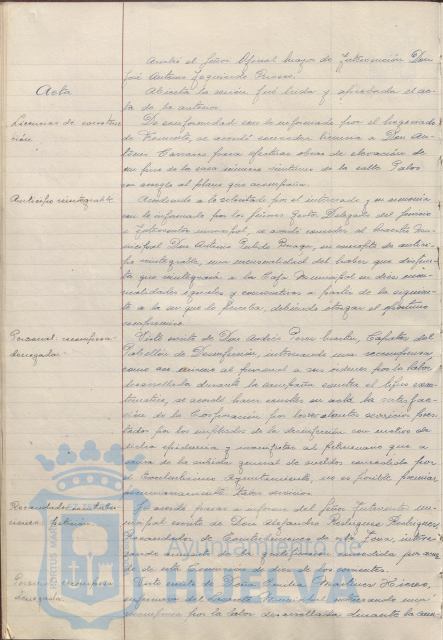 Asistió el Señor Oficial mayor de Intervención Don
José Antonio Izquierdo
Acta
Abierta la sesión fué leida y aprobada el ac-
ta de la anterior.
Licencias de construc-
ción.
De conformidad con lo informado por el Negociado
de Fomento, se acordó conceder licencia a Don An-
tonio para efectuar obras de elevación de
un piso de la casa número de la calle Palos
con arreglo al plano que acompaña.
Anticipo reintegrable
Accediendo a lo solicitado por el interesado, y en armonía
con lo informado por los Señores Gestor Delegado del
e Interventor municipal, se acordó conceder al Mu-
nicipal Don Antonio en concepto de antici-
po reintegrable, una mensualidad del haber que disfru-
ta que reintegrará a la Caja Municipal en diez men-
sualidades iguales y consecutivas a partir de la siguien-
te a la en que lo perciba, debiendo otorgar el oportuno
compromiso.
Personal: recompensa
denegada.
Visto escrito de Don Andrés Capataz del
Pabellón de Desinfección, interesando una recompensa
como al personal a sus órdenes por la labor
desarrollada durante la campaña contra el tifus exan-
temático, se acordó hacer constar en acta la satisfac-
ción de la Corporación por los servicios pres-
tados por los empleados de la desinfección con motivo de
dicha epidemia y manifestar al peticionario que a
causa de la subida general de sueldos concedida por
el Excelentísimo Ayuntamiento, no es posible premiar
tales servicios.
Recaudador de Contribu-
ciones: petición.
Se acordó pasar a informe del Señor Interventor mu-
nicipal escrito de Don Alejandro Rodríguez Rodríguez
Recaudador de Contribuciones de esta Zona, intere-
de esta Comisión de diez de los corrientes.
recompensa
denegada.
Visto escrito de Doña Emilia Martínez
interesando una
recompensa por la labor desarrollada durante la cam-
Ayuntamiento de
HUELVA